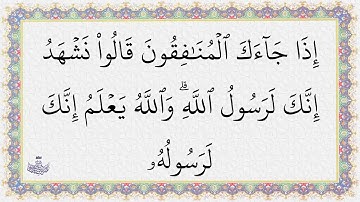 إِذَا جَآءَكَ ٱلْمُنَٰفِقُونَ قَالُوا۟ نَشْهَدُ
إِنَّكَ لَرَسُولُ ٱللَّهِ ۗ وَٱللَّهُ يَعْلَمُ إِنَّكَ
لَرَسُولُهُۥ